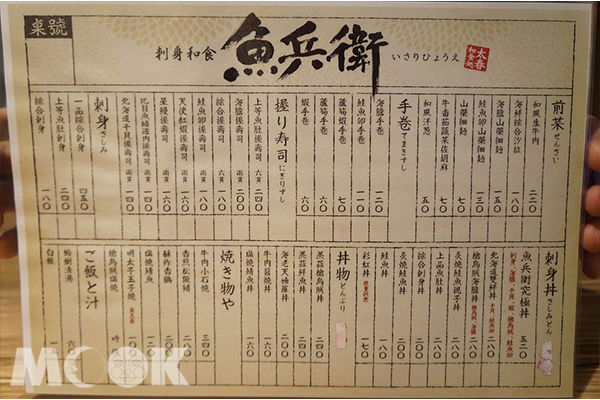 桌號
刺身和食
魚兵衛
いさりひょうえ
太春
和食処
前菜 ぜんさい
和風生牛肉 二二〇
海鮮綜合沙拉 一八〇
海膽山藥細麵 一五〇
鮭魚卵山藥細麵 一三〇
山藥細麵 七〇
牛番茄蔬菜佐胡麻 七〇
和風洋蔥 五〇
手卷 てまきすし
海膽手卷 二〇〇
鮭魚卵手卷 一二〇
蘆筍手卷 七〇
蘆筍蝦手卷 七〇
蝦手卷 六〇
握り寿司 にぎりずし
上等魚肚握壽司 六貫 二四〇
海膽握壽司 兩貫 二〇〇
綜合握壽司 六貫 一八〇
鮭魚卵握壽司 兩貫 一八〇
天使紅蝦握壽司 兩貫
星鰻握壽司 兩貫
比目魚鰭邊肉握壽司 兩貫 一四〇
北海道干貝握壽司 兩貫 一四〇
刺身 さしみ
一品綜合刺身 四五〇
上等魚肚刺身 二四〇
綜合刺身 一八〇
刺身丼 さしみどん
魚兵衛究極丼 五二〇
刺身、海膽、干貝、蝦、槍烏賊、鮭魚卵
北海道雙鮮丼 干貝、鮭魚卵 二八〇
槍烏賊海膽丼 槍烏賊、海膽 二八〇
炙燒鮭魚親子丼 二八〇
上品魚肚丼 二八〇
綜合刺身丼 二〇〇
炙燒鮭魚丼 二〇〇
鮭魚丼 一八〇
彩虹丼 一七〇
丼物 どんぶり
蒸蒜槍烏賊丼
蒸蒜鮮魚丼 二四〇
海老天婦羅丼 二〇〇
牛肉醬燒丼 一六〇
塩燒鯖魚丼 一六〇
焼き物や
牛肉小石燒 三四〇
香煎松阪豬 二〇〇
酥炸香魚 二〇〇
塩燒鯖魚 一八〇
明太子玉子燒 一〇〇
槍烏賊塩燒 時
ご飯と汁
蛤蜊清湯 六〇
白飯
MOOK